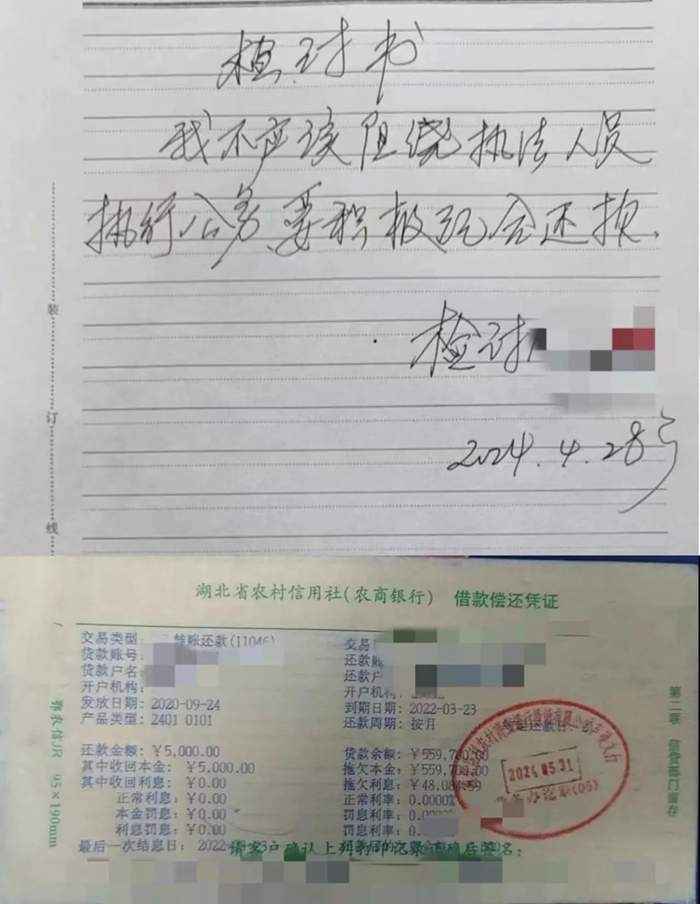 检讨书
我不应该阻绕执法人员
执行公务要积极配合还损、
检讨
2024.4.28号
装
订
线
湖北省农村信用社(农商银行) 借款偿还凭证
交易类型: 转账还款(11046)
贷款账号
贷款户名
开户机构:
发放日期: 2020-09-24
产品类型: 2401 0101
还款金额: ￥5,000.00
其中收回本金: ￥5,000.00
其中收回利息: ￥0.00
正常利息: ￥0.00
本金罚息: ￥0.00
利息罚息: ￥0.00
最后一次结息日: 2022
交易
还款账
还款户
开户机构:
到期日期: 2022-03-23
还款周期: 按月
贷款余额: ￥559,700.00
拖欠本金: ￥559,700.00
拖欠利息: ￥48,084.59
正常利率: 0.0000%
罚息利率: 0.
利息罚息: 0.
请客户确认上列打印记录正确后签名:
2024.05.31
(05)
鄂农信JR 95×190mm
第二联 信贷部门留存